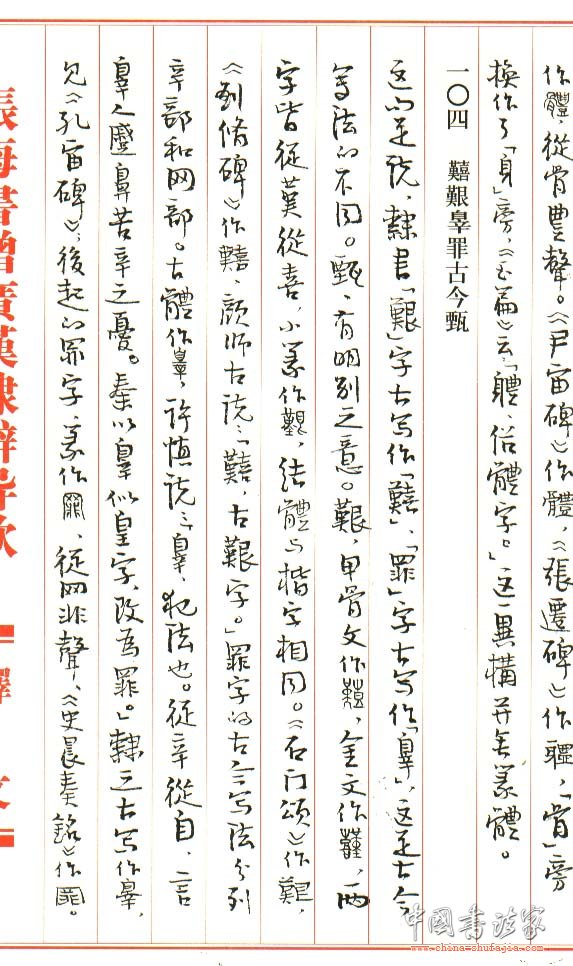 作體，從骨豊聲。《尹宙碑》作體，《張遷碑》作軆，「骨」旁
換作了「身」旁，《玉篇》云「軆、俗體字。」这一異構并無篆體。
一〇四　囏艱辠罪古今甄
这の是説，隸書「艱」字古写作「囏」、「罪」字古写作「辠」，这是古今
写法的不同。甄、有明别之意。艱，甲骨文作囏，金文作囏，兩
字皆從堇從喜，小篆作艱，結體与楷字相同。《石门頌》作艱，
《刘脩碑》作囏，顔師古説：「囏，古艱字。」罪字的古今写法分列
辛部和网部。古體作辠，許慎説：辠、犯法也。從辛從自，言
辠人蹙鼻苦辛之憂。秦以辠似皇字，改為罪。」隸之古写作辠，
見《孔宙碑》；後起的罪字，篆作罪、從网非聲，《史晨奏銘》作罪。
張海書增廣漢隸辨异歌
釋文
中國书法家
www.china-shufajia.com